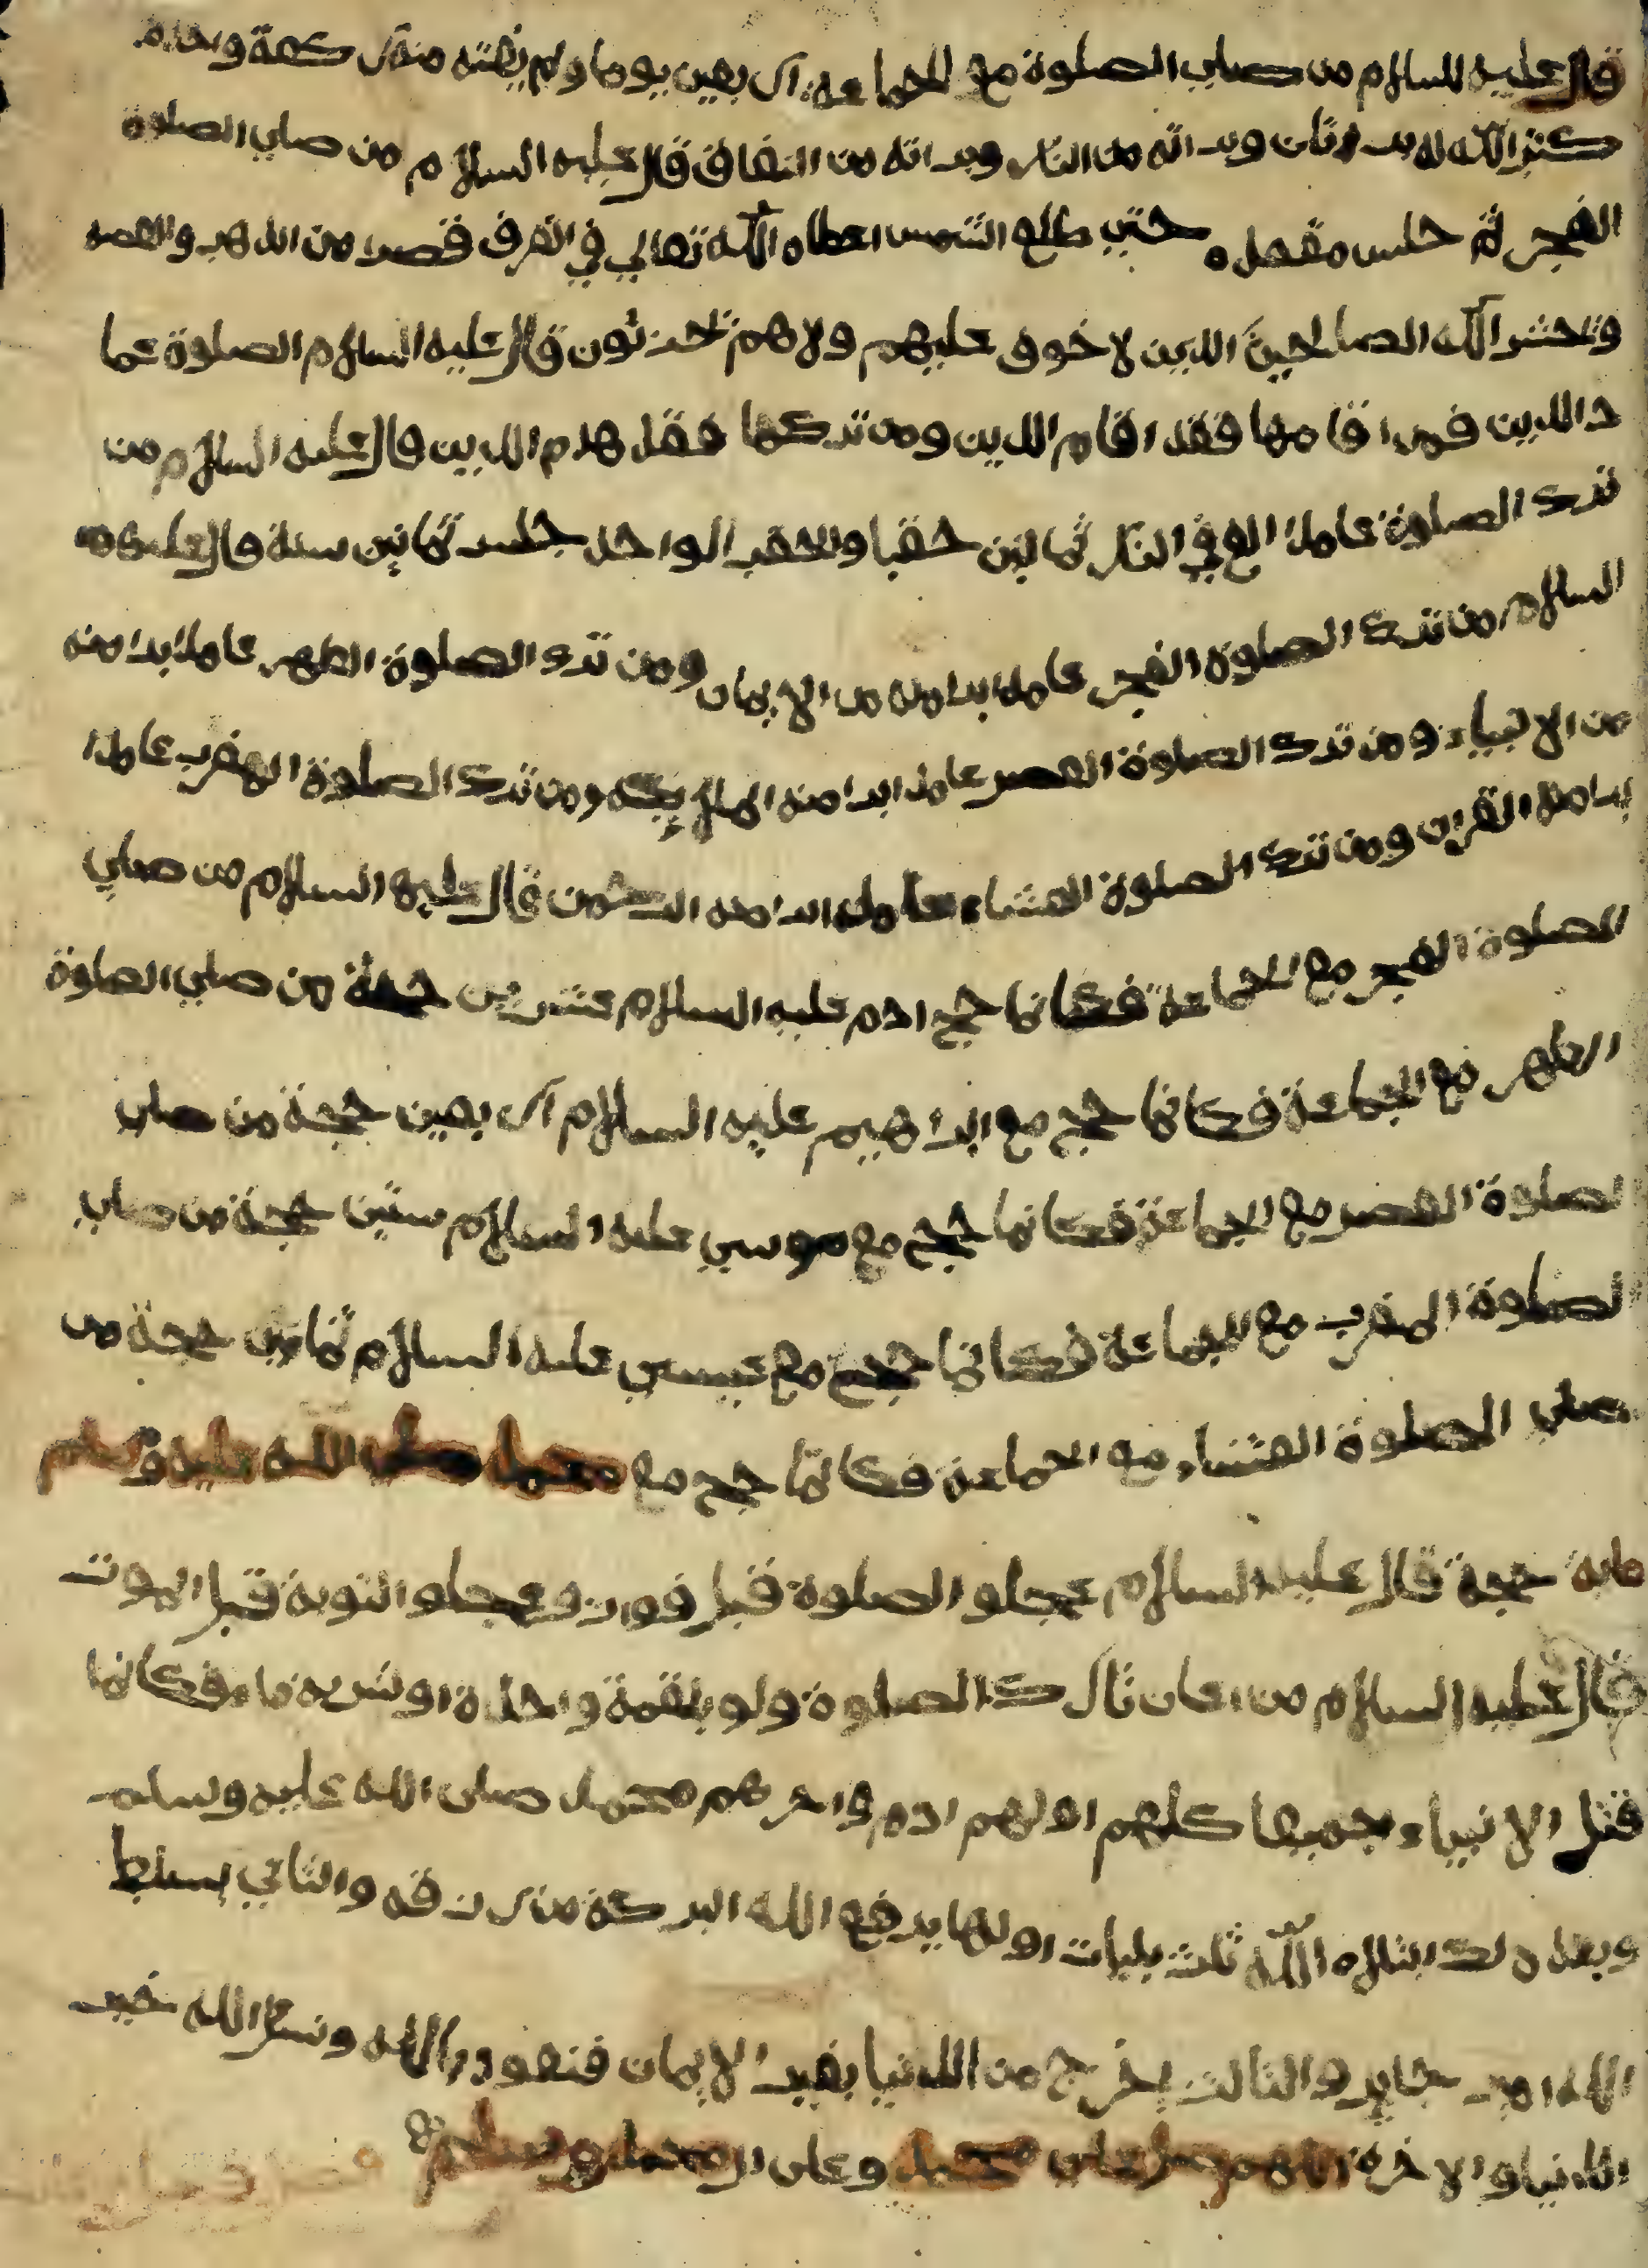 قال عليه السلام من صلي الصلوة مع الجماعة اربعين يوما ولم يفته منه ركعة وحده
كتب الله له براتان وبراته من النار وبراته من النفاق قال عليه السلام من صلي الصلوة
الفجر ثم جلس مقعده حتي طلع الشمس اعطاه الله تعالي في الغرف قصرا من الذهب والفضه
وتحشر الله الصالحين الذين لا خوف عليهم ولاهم تحزنون قال عليه السلام الصلوة عما
د الدين فمن اقامها فقد اقام الدين ومن تركها فقد هدم الدين قال عليه السلام من
ترك الصلوة عامدا في النار ثمانين حقبا والحقب الواحد جلس ثمانين سنة قال عليه
السلام من ترك الصلوة الفجر عامدا برا منه من الايمان ومن ترك الصلوة الظهر عامدا برا منه
من الانبياء ومن ترك الصلوة العصر عامدا برا منه الملايكة ومن ترك الصلوة المغرب عامدا
برا منه القران ومن ترك الصلوة العشاء عامدا برا منه الرحمن قال عليه السلام من صلي
الصلوة الفجر مع الجماعة فكانما حج ادم عليه السلام عشرين حجة من صلي الصلوة
الظهر مع الجماعة فكانما حج مع ابراهيم عليه السلام اربعين حجة من صلي
لصلوة العصر مع الجماعة فكانما حج مع موسي عليه السلام ستين حجة من صلي
لصلوة المغرب مع الجماعة فكانما حج مع عيسي عليه السلام ثمانين حجة من
صلي الصلوة العشاء مع الجماعة فكانما حج مع محمد صلي الله عليه وسلم
ماية حجة قال عليه السلام عجلو الصلوة قبل فوات وعجلو التوبة قبل الموت
قال عليه السلام من اعان تارك الصلوة ولو بلقمة واحدة او شربة ماء فكانما
قتل الانبياء جميعا كلهم اولهم ادم واخرهم محمد صلى الله عليه وسلم
وبعد ذلك ابتلاه الله ثلث بليات اولها يرفع الله البركة من رزقه والثاني يسلط
الله امير جاير والثالث يخرج من الدنيا بغير الايمان فنعوذ بالله ونسئل الله خير
الدنيا والاخرة اللهم صل علي محمد وعلى ال محمد وسلم